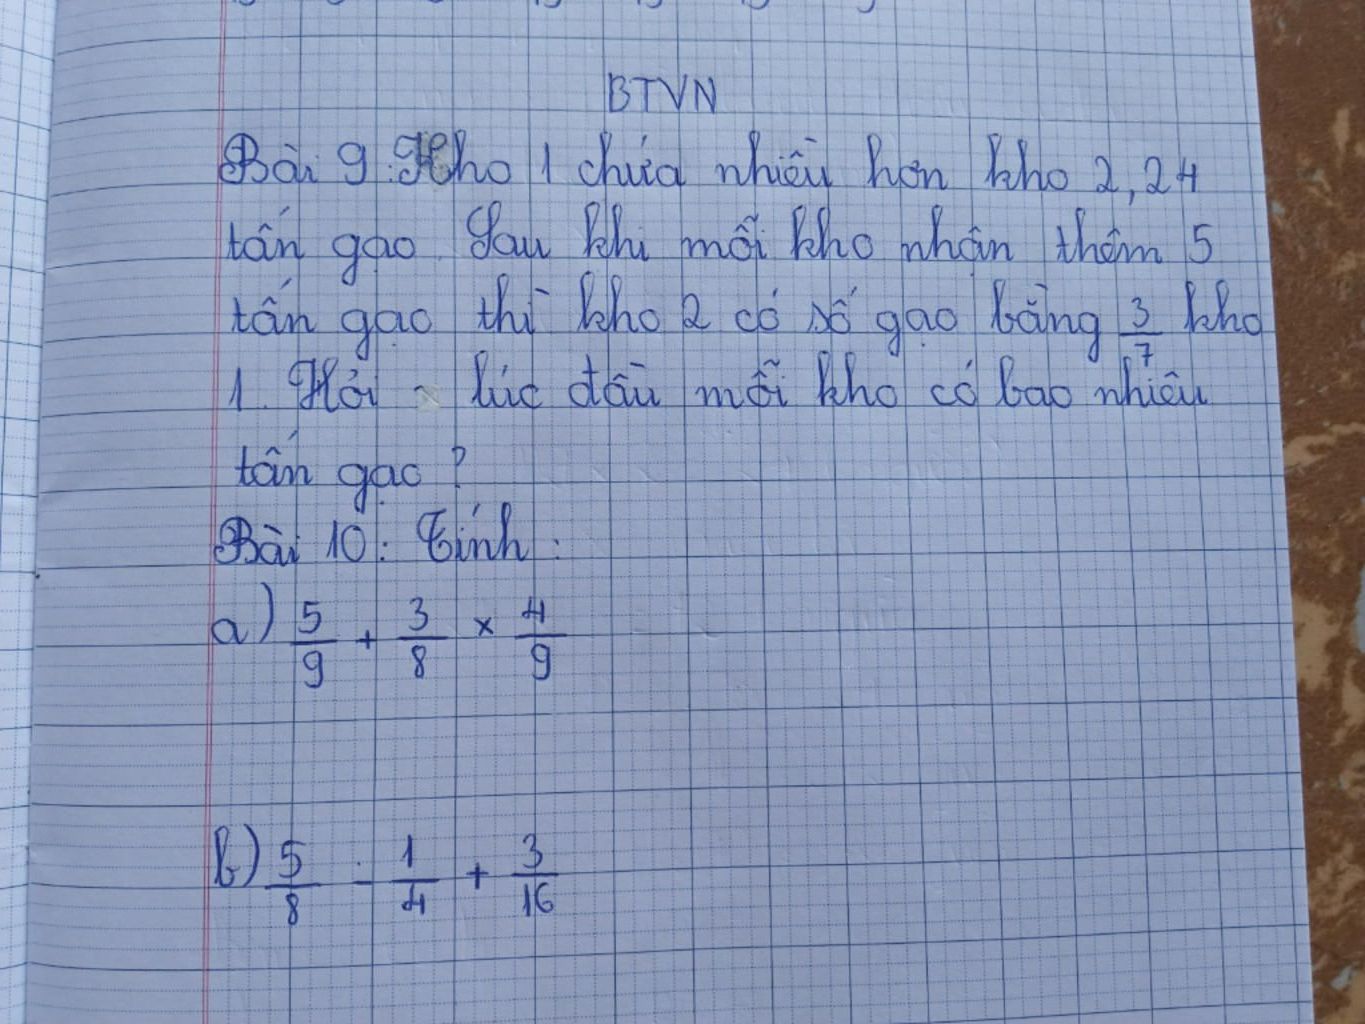 BTVN
Bài 9: Kho 1 chứa nhiều hơn kho 2, 24
tấn gạo. Sau khi mỗi kho nhận thêm 5
tấn gạo thì kho 2 có số gạo bằng 3/7 kho
1. Hỏi lúc đầu mỗi kho có bao nhiêu
tấn gạo?
Bài 10: Tính:
a) 5/9 + 3/8 × 4/9
b) 5/8 - 1/4 + 3/16